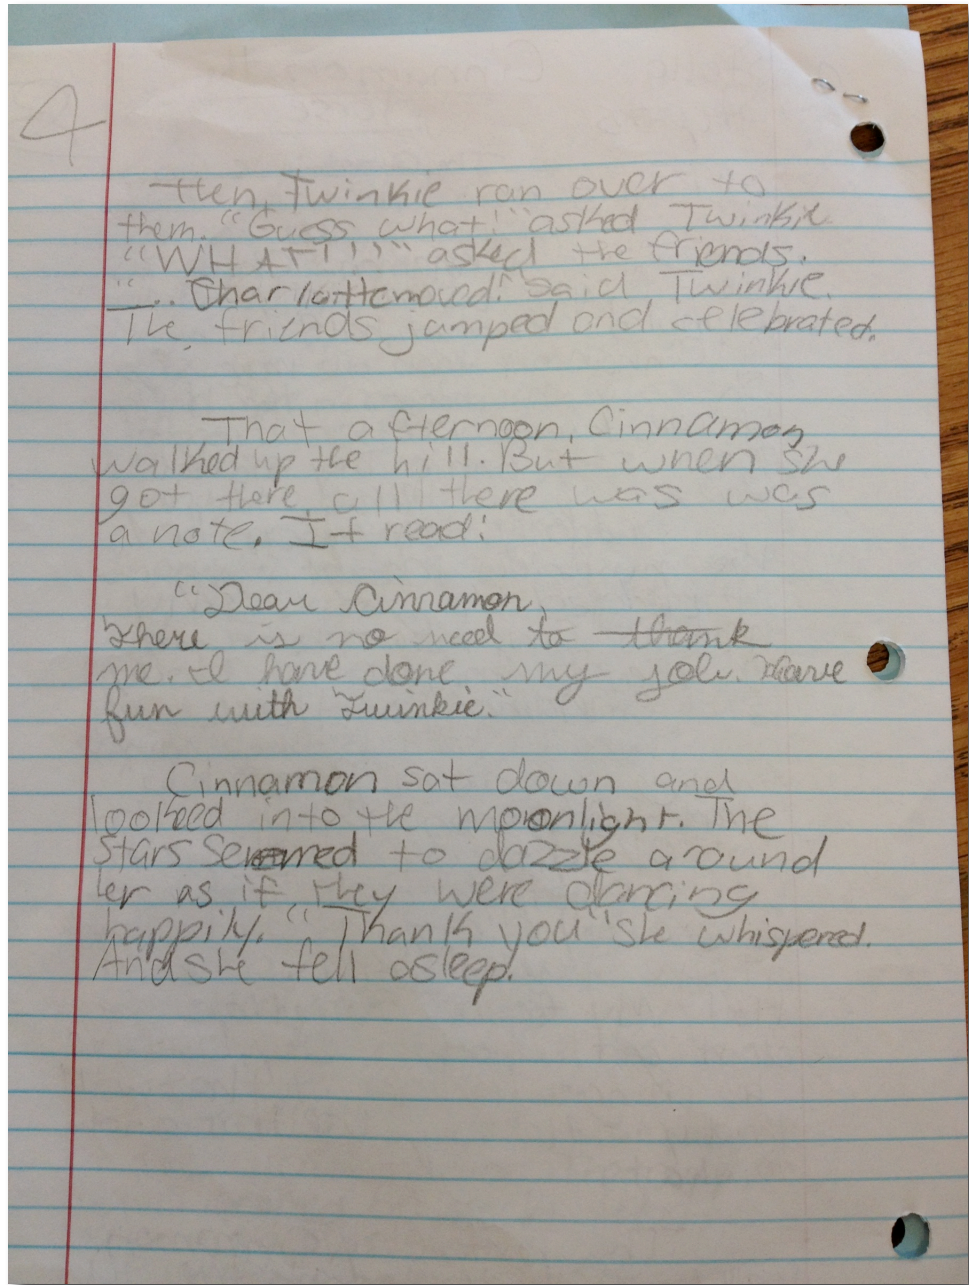 4
then, Twinkie ran over to
them. "Guess what!" asked Twinkie
"WHAT!!!" asked the friends.
"... Charlotte moved!" said Twinkie.
The friends jumped and celebrated.
That afternoon, Cinnamon
walked up the hill. But when she
got there, all there was was
a note. It read:
"Dear Cinnamon,
There is no need to thank
me. I have done my job. Have
fun with Twinkie."
Cinnamon sat down and
looked into the moonlight. The
stars seemed to dazzle around
her as if they were dancing
happily. "Thank you" she whispered.
And she fell asleep.